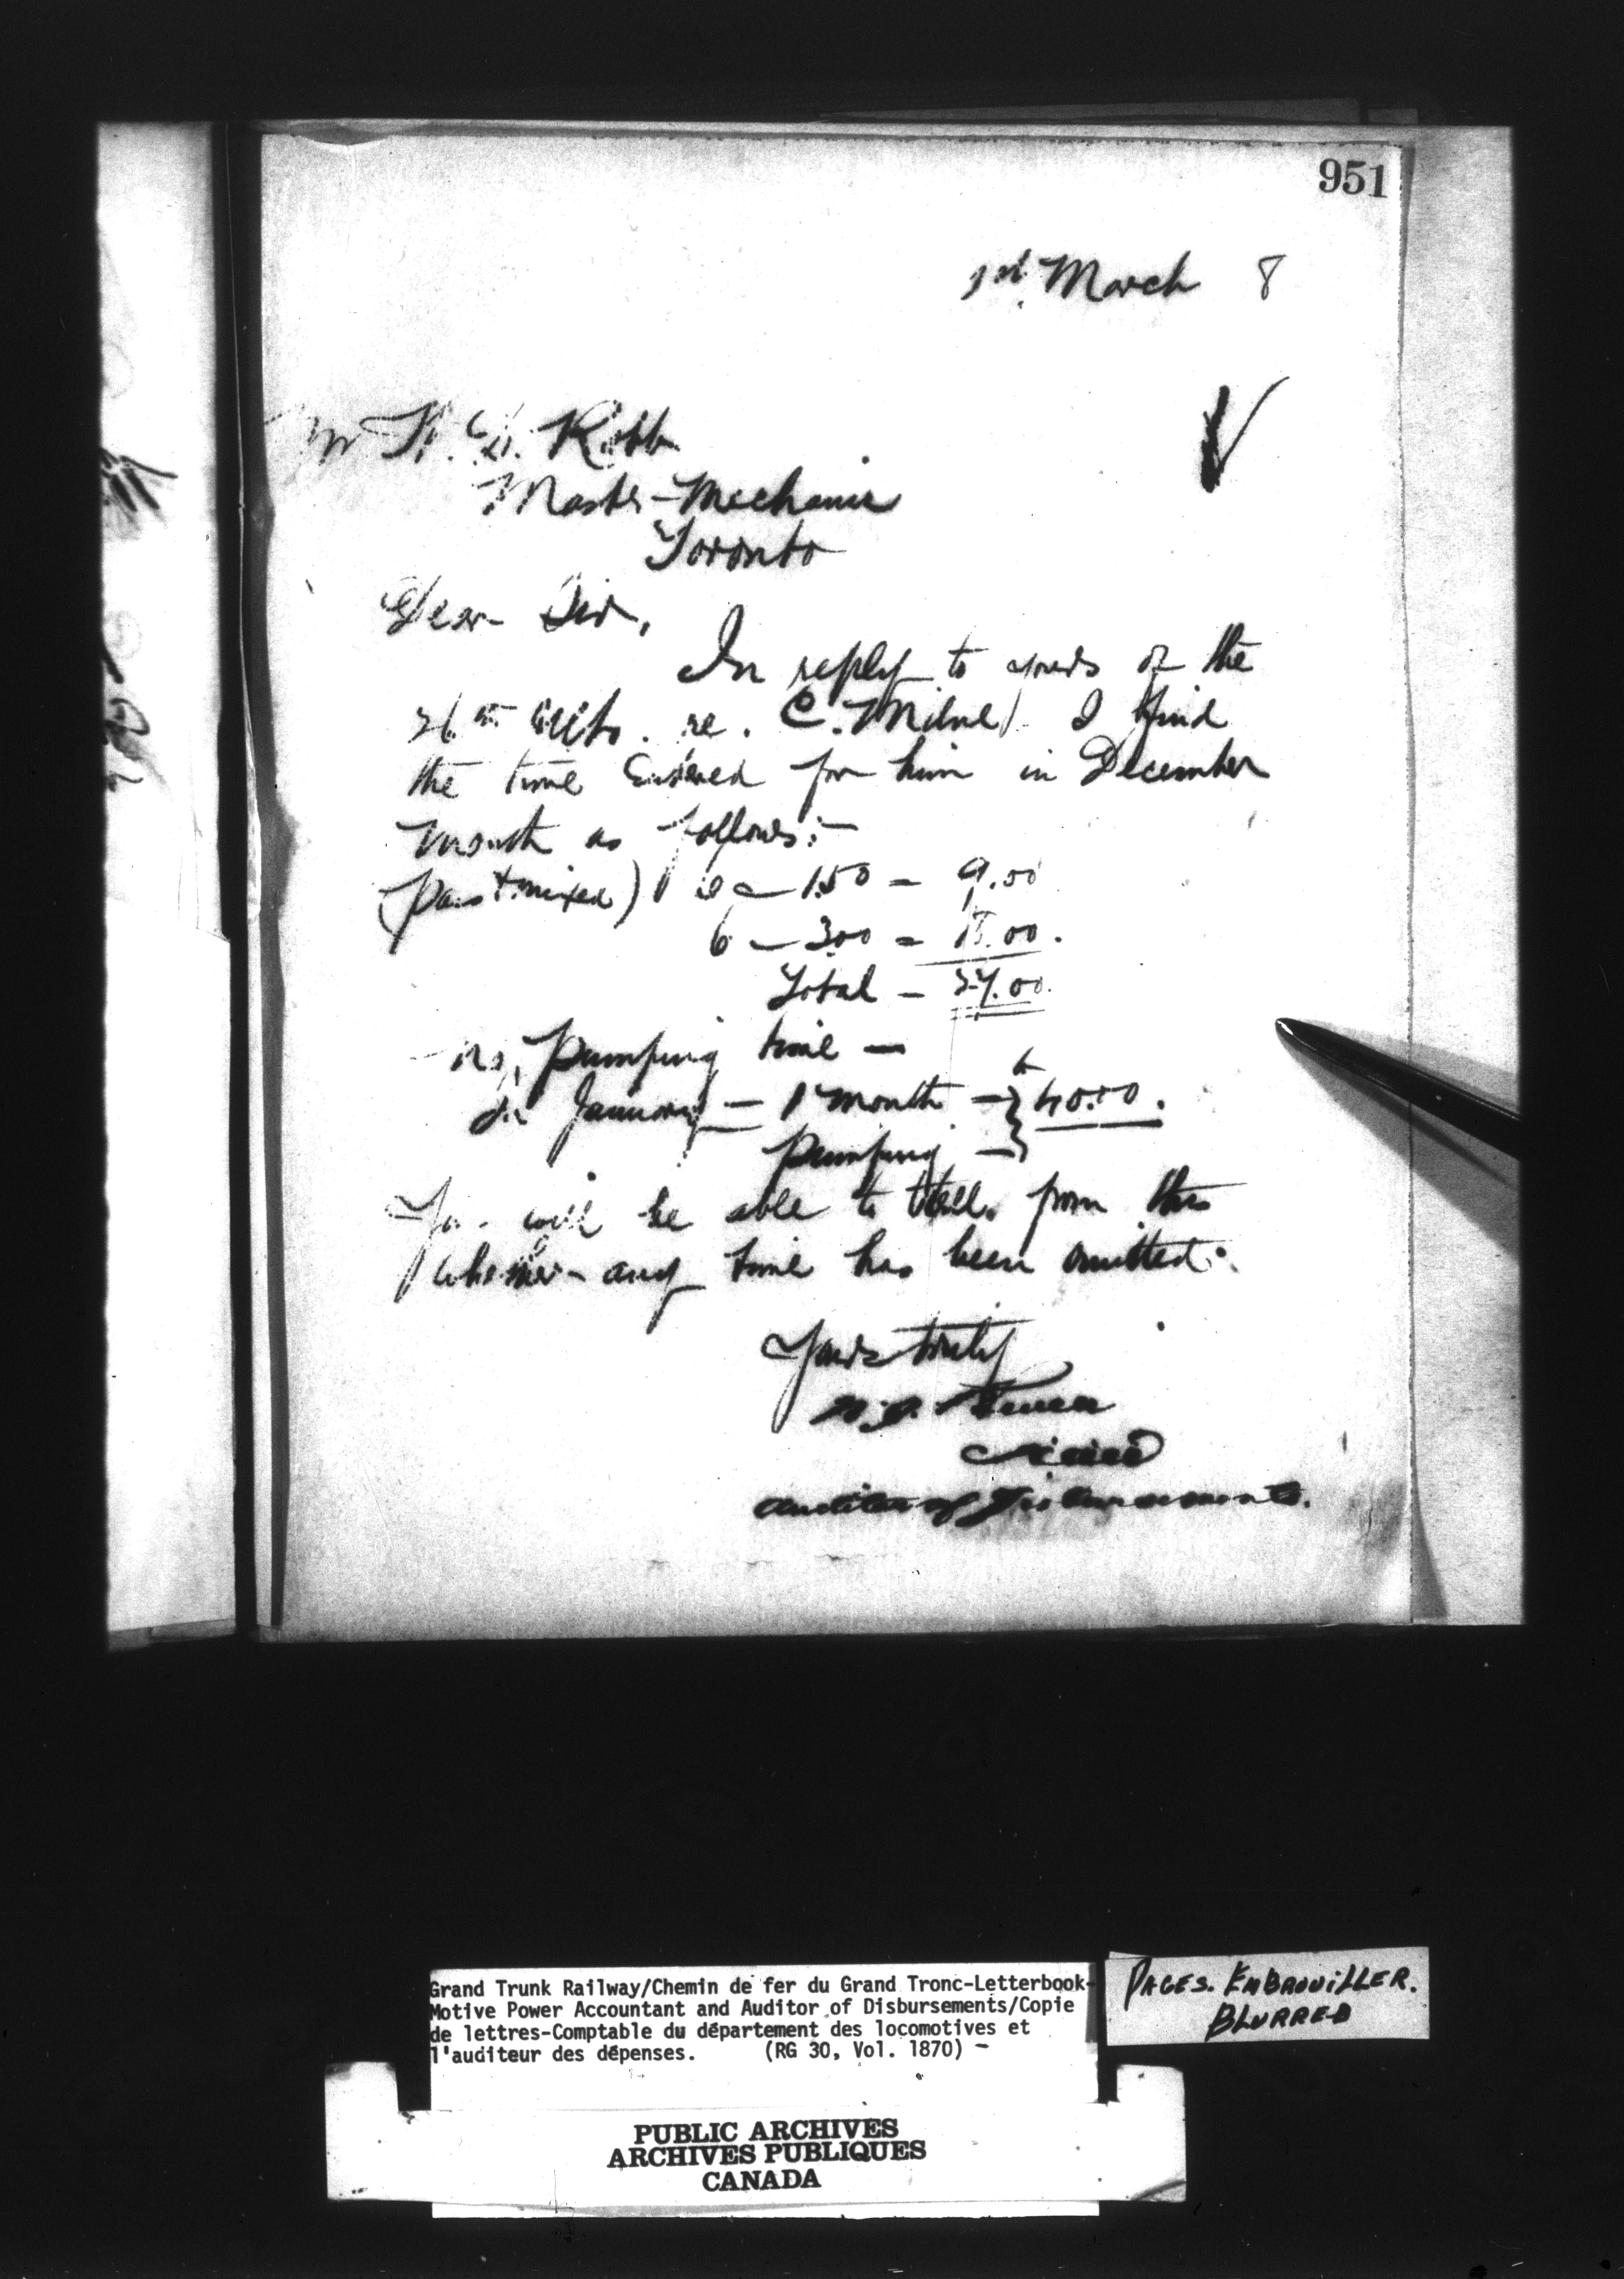 951
1st March 8
Mr W. D. Robb
Master-Mechanic
Toronto
Dear Sir,
In reply to yours of the
26th ulto. re. C. Milne I find
the time Entered for him in December
month as follows:-
(Pass & mixed) 6 - 1.50 = 9.00
6 - 3.00 = 18.00.
Total - 27.00.
No, Pumping time -
In January - 1 month -} 40.00.
Pumping -}
You will be able to tell from this
whether any time has been omitted.
Yours truly
Auditor of Disbursements.
Grand Trunk Railway/Chemin de fer du Grand Tronc-Letterbook-
Motive Power Accountant and Auditor of Disbursements/Copie
de lettres-Comptable du département des locomotives et
l'auditeur des dépenses. (RG 30, Vol. 1870) -
PAGES. EMBROUILLER.
BLURRED
PUBLIC ARCHIVES
ARCHIVES PUBLIQUES
CANADA